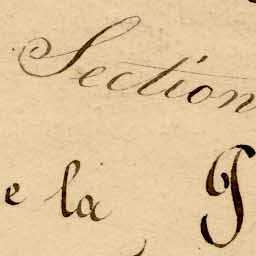 Section
e la